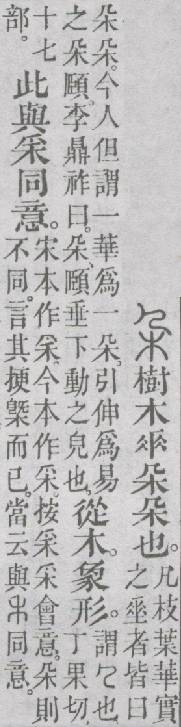 樹木𠂹朵朵也。
凡枝葉華實
之𠂹者皆曰
朵朵。今人但謂一華爲一朵。引伸爲易
之朵頤。李鼎祚曰。朵頤垂下動之皃也。
從木。象形。
謂𠘧也
丁果切。
十七
部。
此與𥝩同意。
宋本作𥝩。今本作采。按𥝩采會意。朵則
不同。言其梗槩而已。當云與同意。